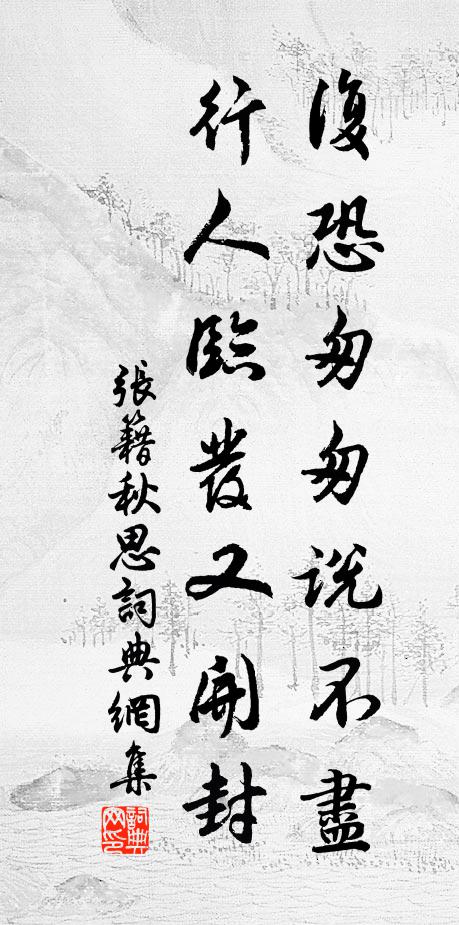 復恐匆匆說不盡
行人臨發又開封
張籍秋思詞典網集
詞典網印